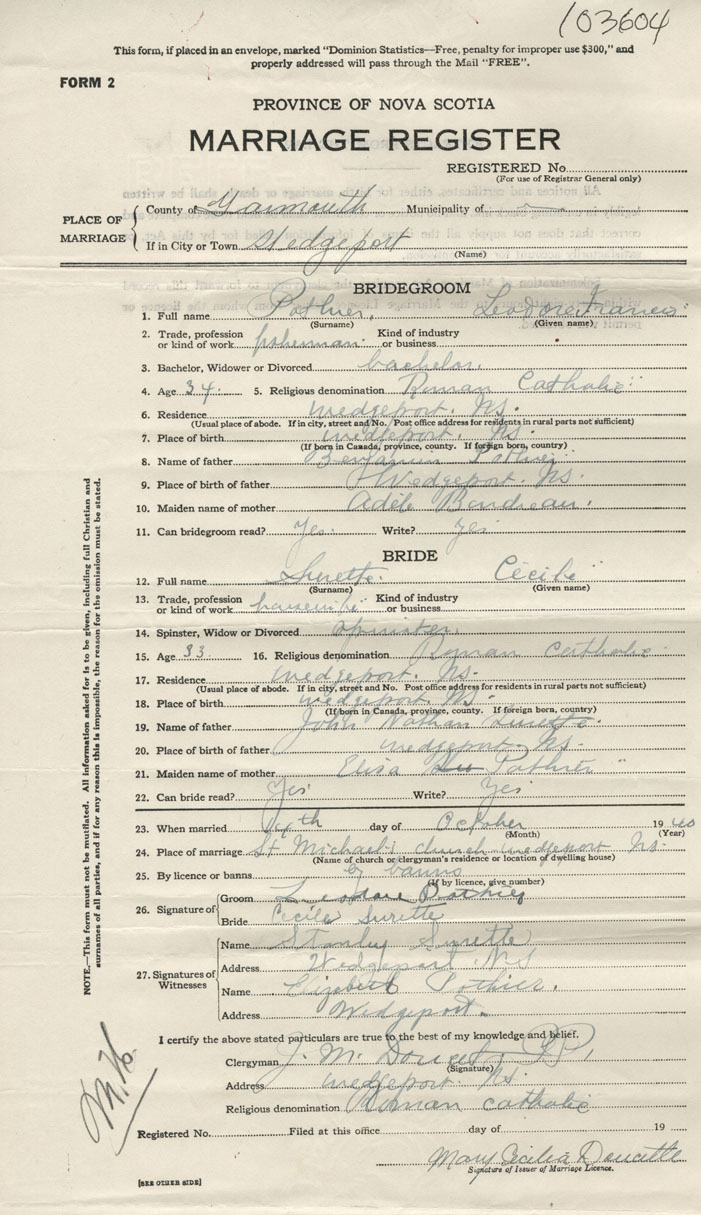 103604
This form, if placed in an envelope, marked "Dominion Statistics—Free, penalty for improper use $300," and
properly addressed will pass through the Mail "FREE".
FORM 2
PROVINCE OF NOVA SCOTIA
MARRIAGE REGISTER
REGISTERED No.
(For use of Registrar General only)
PLACE OF MARRIAGE
County of Yarmouth Municipality of
If in City or Town Wedgeport
(Name)
BRIDEGROOM
1. Full name Pothier, Leodore Francis
(Surname) (Given name)
2. Trade, profession or kind of work fisherman Kind of industry or business
3. Bachelor, Widower or Divorced bachelor
4. Age 34. 5. Religious denomination Roman Catholic
6. Residence Wedgeport. NS.
(Usual place of abode. If in city, street and No. Post office address for residents in rural parts not sufficient)
7. Place of birth Wedgeport. NS.
(If born in Canada, province, county. If foreign born, country)
8. Name of father Benjamin Pothier
9. Place of birth of father Wedgeport. NS.
10. Maiden name of mother Adèle Boudreau.
11. Can bridegroom read? Yes. Write? Yes
BRIDE
12. Full name Surette. Cecile
(Surname) (Given name)
13. Trade, profession or kind of work Kind of industry or business
14. Spinster, Widow or Divorced spinster
15. Age 33 16. Religious denomination Roman Catholic
17. Residence Wedgeport. NS.
(Usual place of abode. If in city, street and No. Post office address for residents in rural parts not sufficient)
18. Place of birth Wedgeport NS.
(If born in Canada, province, county. If foreign born, country)
19. Name of father John Nathan Surette.
20. Place of birth of father Wedgeport NS.
21. Maiden name of mother Elisa Pothier
22. Can bride read? Yes Write? Yes
23. When married day of October 1940
(Month) (Year)
24. Place of marriage St Michael's church Wedgeport NS.
(Name of church or clergyman's residence or location of dwelling house)
25. By licence or banns by banns
(If by licence, give number)
26. Signature of
Groom Leodore Pothier
Bride Cecile Surette
27. Signatures of Witnesses
Name Stanley Surette
Address Wedgeport NS
Name Elizabeth Pothier.
Address Wedgeport.
I certify the above stated particulars are true to the best of my knowledge and belief.
Clergyman J. M.
(Signature)
Address Wedgeport. NS.
Religious denomination Roman catholic
Registered No. Filed at this office day of 19
Mary Cecilia Doucette
Signature of Issuer of Marriage Licence.
[SEE OTHER SIDE]
NOTE.—This form must not be mutilated. All information asked for is to be given, including full Christian and
surnames of all parties, and if for any reason this is impossible, the reason for the omission must be stated.